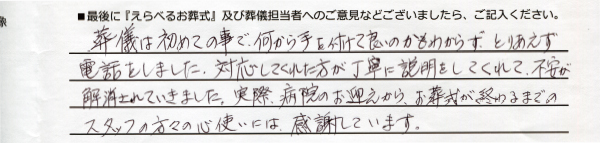 ■最後に『えらべるお葬式』及び葬儀担当者へのご意見などございましたら、ご記入ください。
葬儀は初めての事で、何から手を付けて良いのかもわからず、とりあえず
電話をしました。対応してくれた方が丁寧に説明をしてくれて、不安が
解消されていきました。実際、病院のお迎えから、お葬式が終わるまでの
スタッフの方々の心使いには、感謝しています。